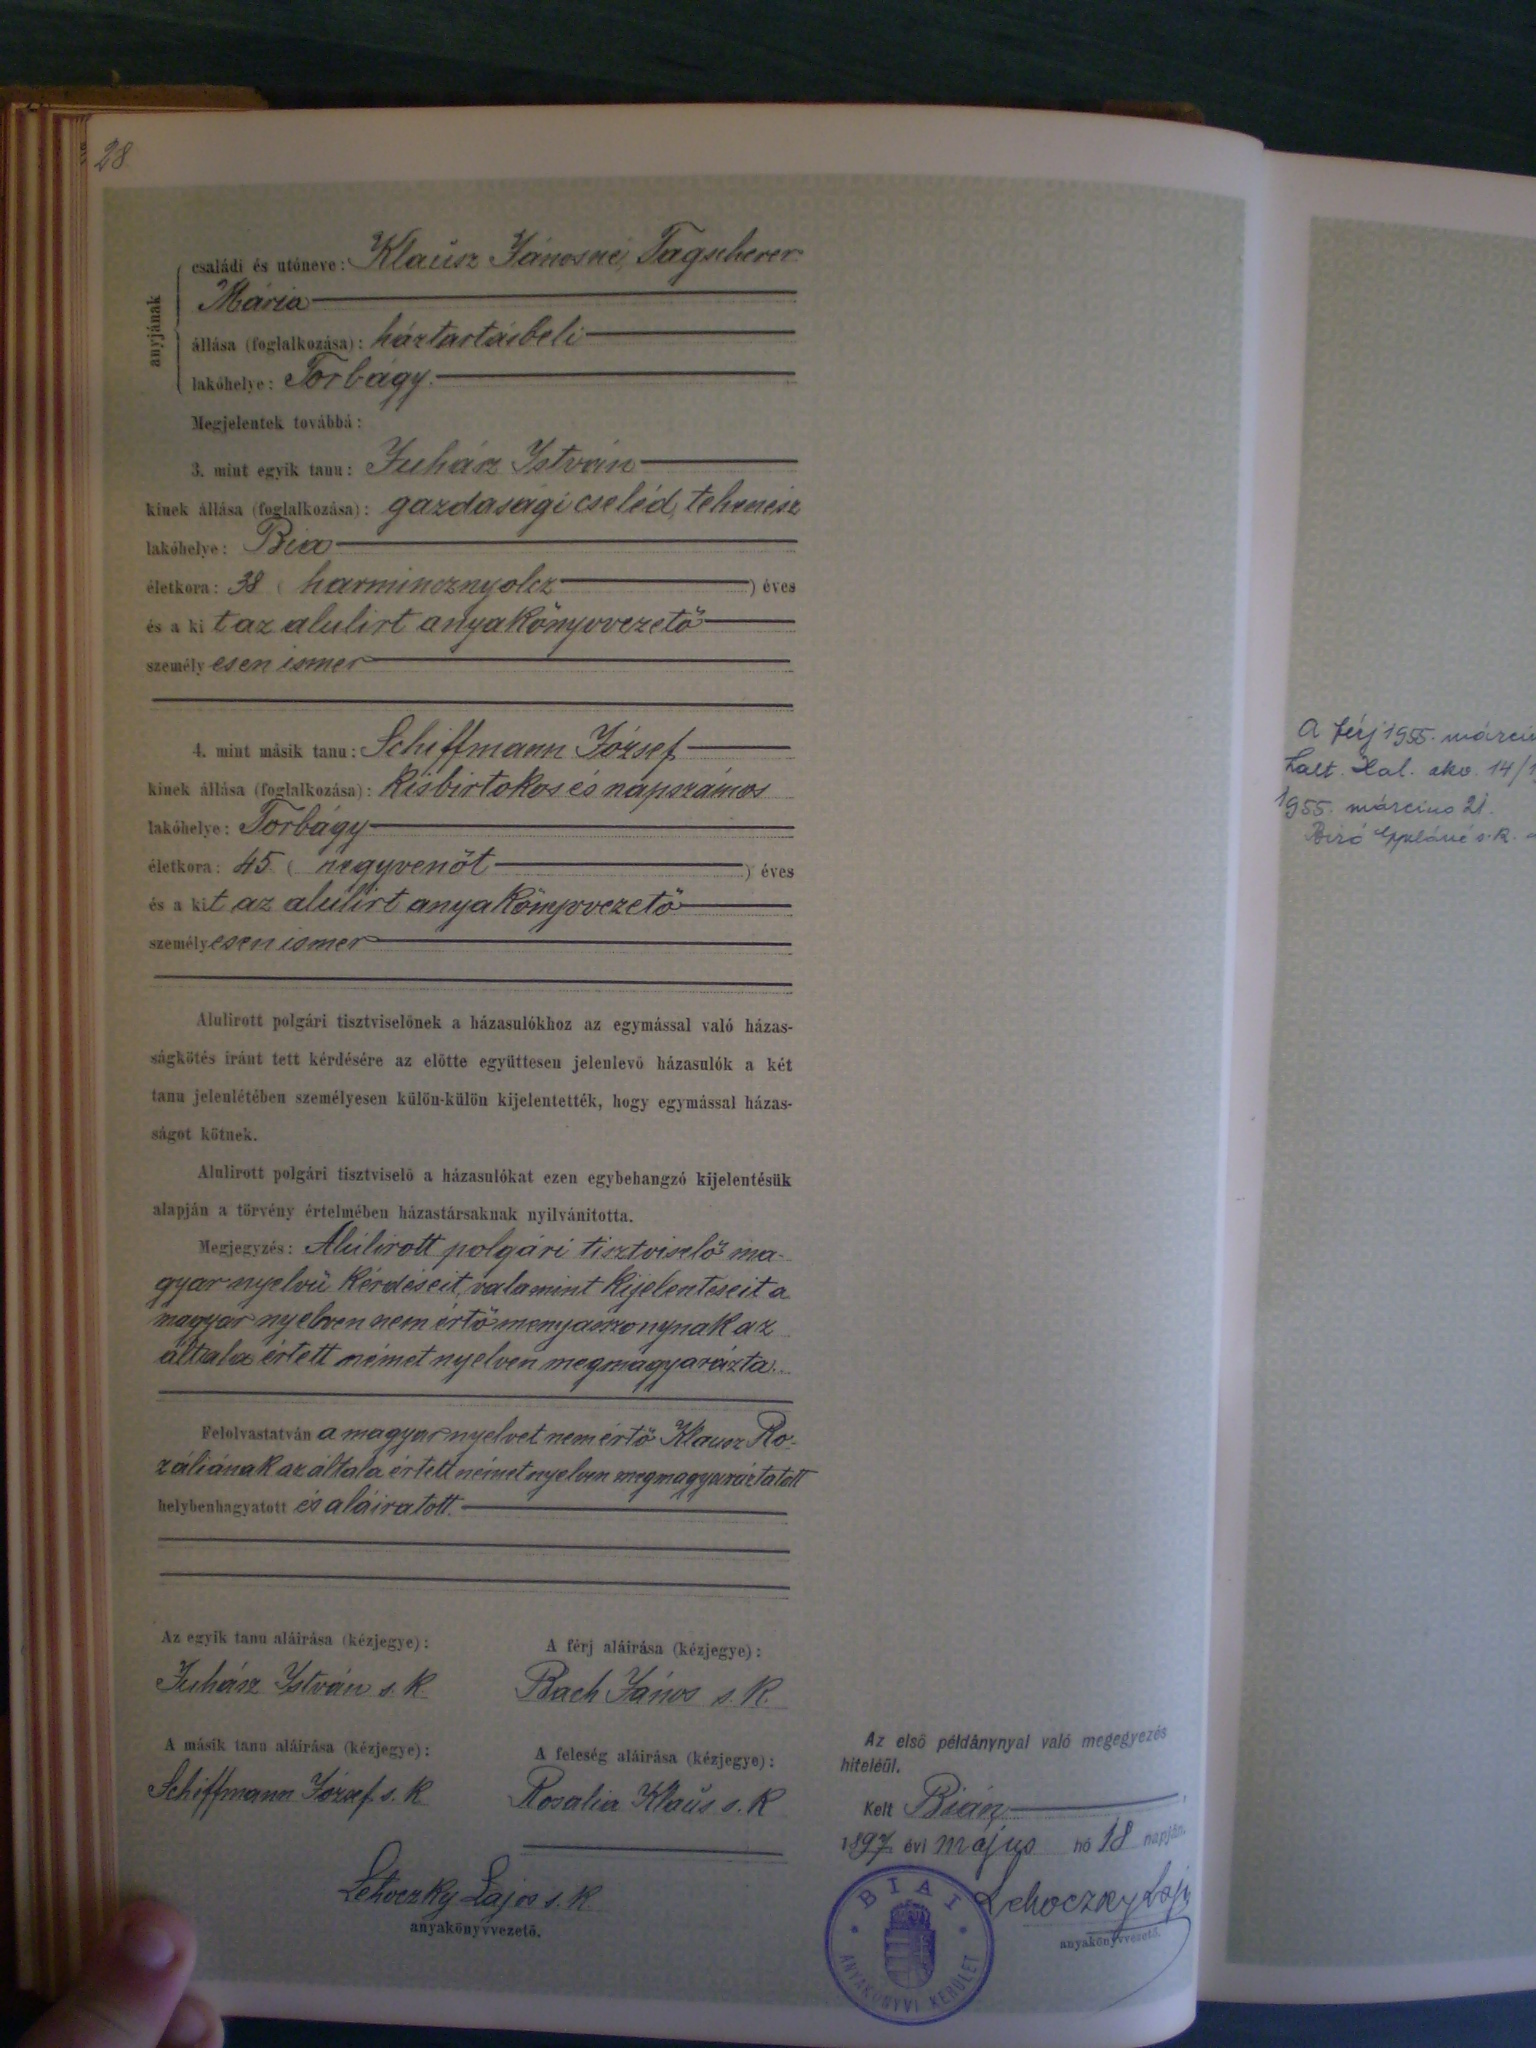 28
családi és utóneve: Klausz Jánosné, Tagscherer
Mária
anyjának
állása (foglalkozása): háztartásbeli
lakóhelye: Torbágy.
Megjelentek továbbá:
3. mint egyik tanu: Juhász István
kinek állása (foglalkozása): gazdasági cseléd, tehenész
lakóhelye: Bia
életkora: 38 ( harmincznyolcz ) éves
és a ki t az alulirt anyakönyvvezető
személy esen ismer
4. mint másik tanu: Schiffmann József
kinek állása (foglalkozása): kisbirtokos és napszámos
lakóhelye: Torbágy
életkora: 45 ( negyvenöt ) éves
és a kit az alulirt anyakönyvvezető
személy esen ismer
Alulirott polgári tisztviselőnek a házasulókhoz az egymással való házas-
ságkötés iránt tett kérdésére az előtte együttesen jelenlevő házasulók a két
tanu jelenlétében személyesen külön-külön kijelentették, hogy egymással házas-
ságot kötnek.
Alulirott polgári tisztviselő a házasulókat ezen egybehangzó kijelentésük
alapján a törvény értelmében házastársaknak nyilvánitotta.
Megjegyzés: Alulirott polgári tisztviselő ma-
gyar nyelvü kérdéseit, valamint kijelentéseit a
magyar nyelven nem értő menyasszonynak az
általa értett német nyelven megmagyarázta.
Felolvastatván a magyar nyelvet nem értő Klausz Ro-
záliának az általa értett német nyelven megmagyaráztatott
helybenhagyatott és aláiratott.
Az egyik tanu aláirása (kézjegye):
Juhász István s. k
A férj aláirása (kézjegye):
Bach János s. k.
A másik tanu aláirása (kézjegye):
Schiffmann József s. k
A feleség aláirása (kézjegye):
Rosalia Klaus s. k
Lehoczky Lajos s. k
anyakönyvvezető.
Az első példánynyal való megegyezés
hiteléül.
Kelt Bián,
1897 évi május hó 18 napján.
Lehoczky Lajos
anyakönyvvezető.
BIAI
ANYAKÖNYVI KERÜLET
A férj 1955. március
1955. március 21.